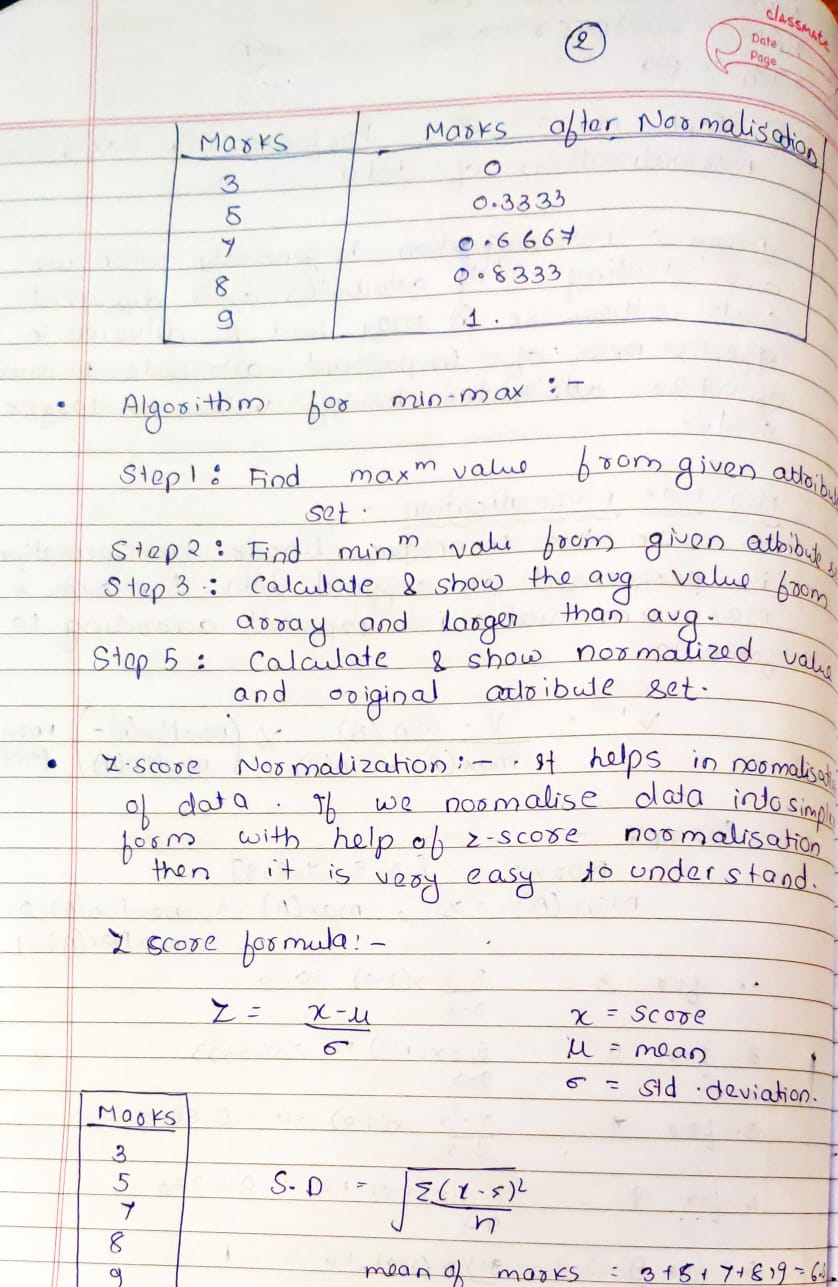 classmate
Date
Page
2
Marks	Marks after Normalisation
3	0
5	0.3333
7	0.6667
8	0.8333
9	1.
• Algorithm for min-max :-
Step1 : Find maxm value from given
set.
Step2 : Find minm value from given attribute
Step 3 : Calculate & show the avg value from
array and larger than avg.
Step 5 : Calculate & show normalized value
and original attribute set.
• Z-score Normalization :- It helps in
of data. If we normalise data into
form with help of z-score normalisation
then it is very easy to understand.
Z score formula :-
Z = x-μ / σ	x = score
μ = mean
σ = std. deviation.
Marks
3
5
7
8
9
S.D = √Σ( )² / n
mean of marks = 3+5+7+8+9 =